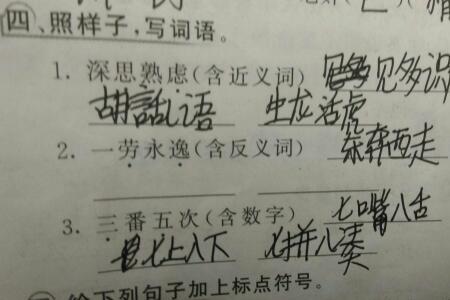 四、照样子,写词语。
1. 深思熟虑(含近义词) 见多识
胡話乱语 生龙活虎
2. 一劳永逸(含反义词) 东奔西走
3. 三番五次(含数字) 七嘴八舌
七上八下 七拼八凑
给下列句子加上标点符号。